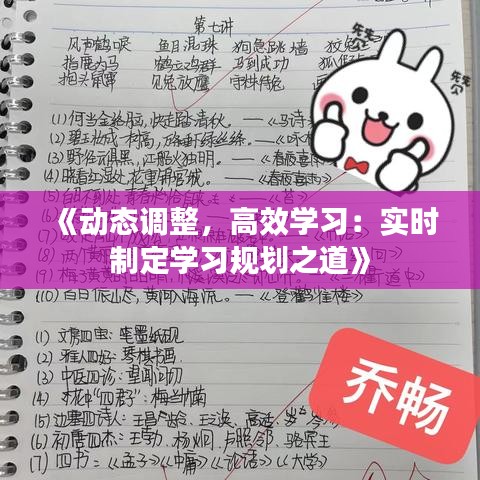 第七讲
风声鹤唳 鱼目混珠 狗急跳墙 狡兔
指鹿为马 鹤立鸡群 马到成功
抱头鼠窜 见兔放鹰 守株待兔
先先
(1)何当金络脑,快走踏清秋。——《马诗
(2)碧玉妆成一树高,万条垂下绿丝绦。——《咏
(3)野径云俱黑,江船火独明。——《春夜喜雨
(4)晓看红湿处,花重锦官城。——《春夜喜雨
《动态调整,高效学习:实时
制定学习规划之道》
(10)白日依山尽,黄河入海流。——《登鹳雀楼》
(1)文房四宝:笔墨纸砚
(2)雅人四好:琴棋书画
(3)中医四诊:望闻问切
(4)花中"四君":梅兰竹菊
(5)边塞四诗人:王昌龄、王之涣、高适、岑参
(6)初唐四杰:王勃、杨炯、卢照邻、骆宾王
(7)四书:《孟子》《中庸》《论语》《大学》
乔畅